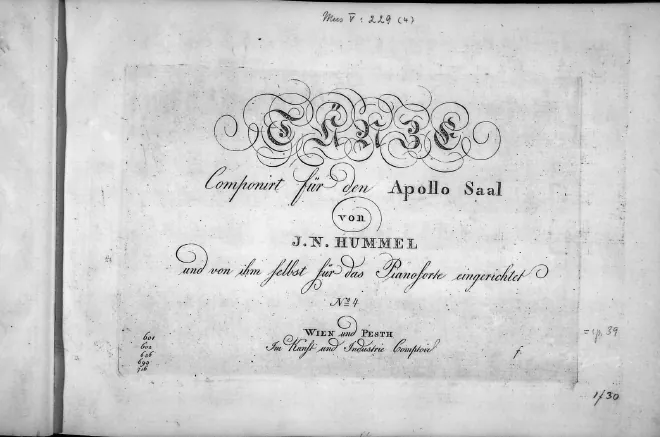 Mus V: 229 (4)
TÄNZE
Componirt für den Apollo Saal
von
J. N. HUMMEL
und von ihm selbst für das Pianoforte eingerichtet
No 4
WIEN und PESTH
Im Kunst und Industrie Comptoir
601
602
696
699
716
f
= op. 39
1f30